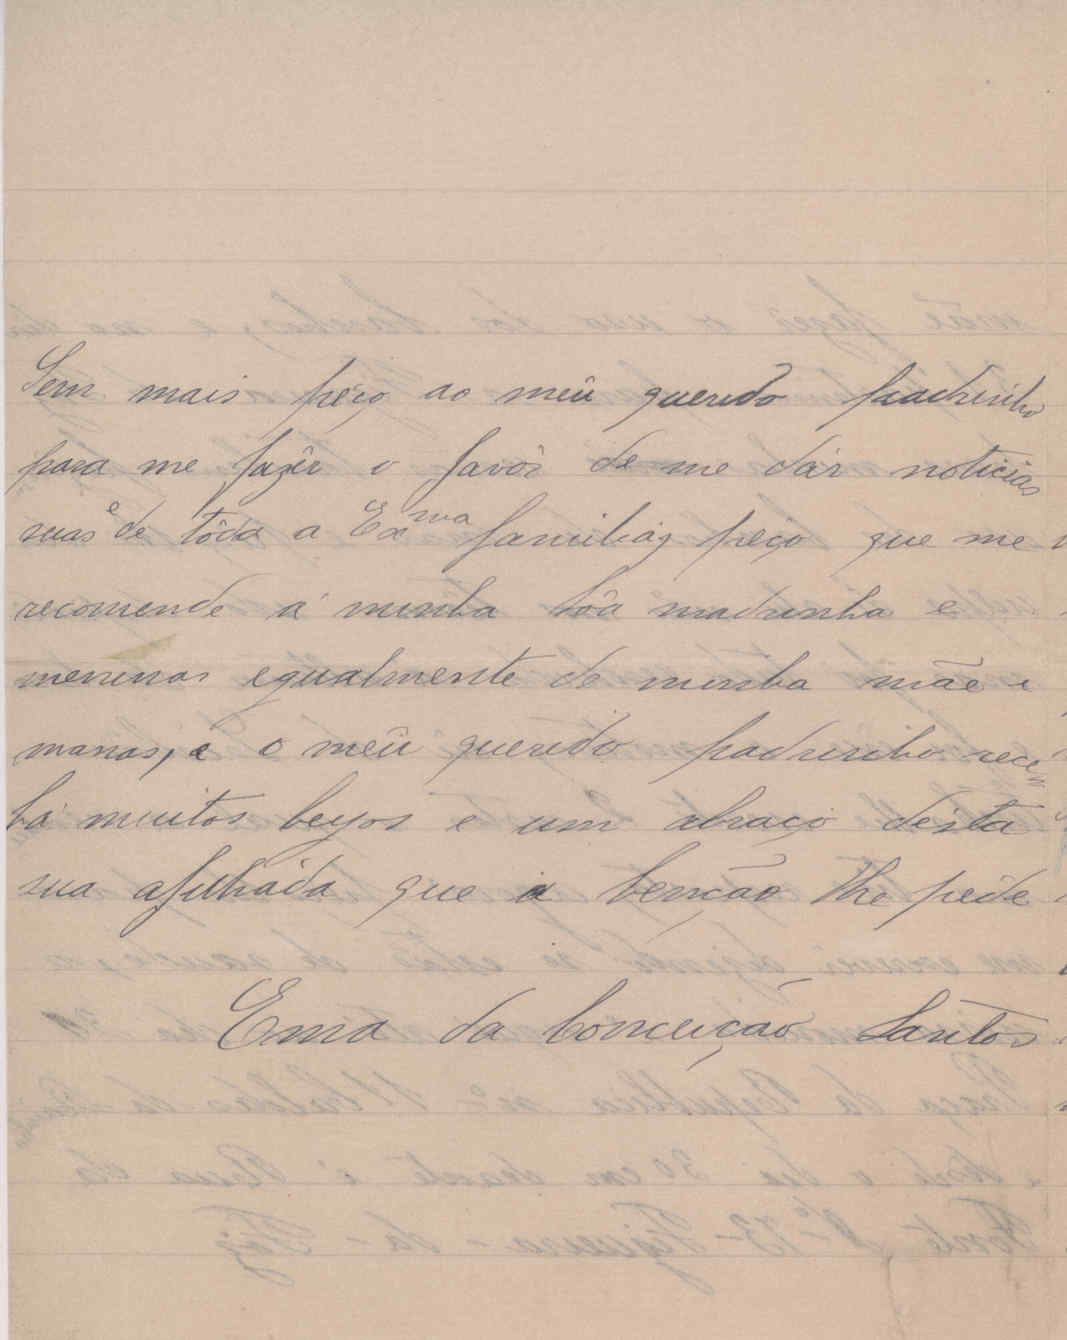 Sem mais péço ao meû querido padrinho
para me fazêr o favôr de me dár noticias
suas e de tôda a Exma familia, peço que me
recomende á minha bôa madrinha e
meninas egualmente de minha mãe e
manas, e o meû querido padrinho rece
bá muitos beijos e um abraço désta
sua afilháda que a benção lhe péde
Ema da Conceição Santos